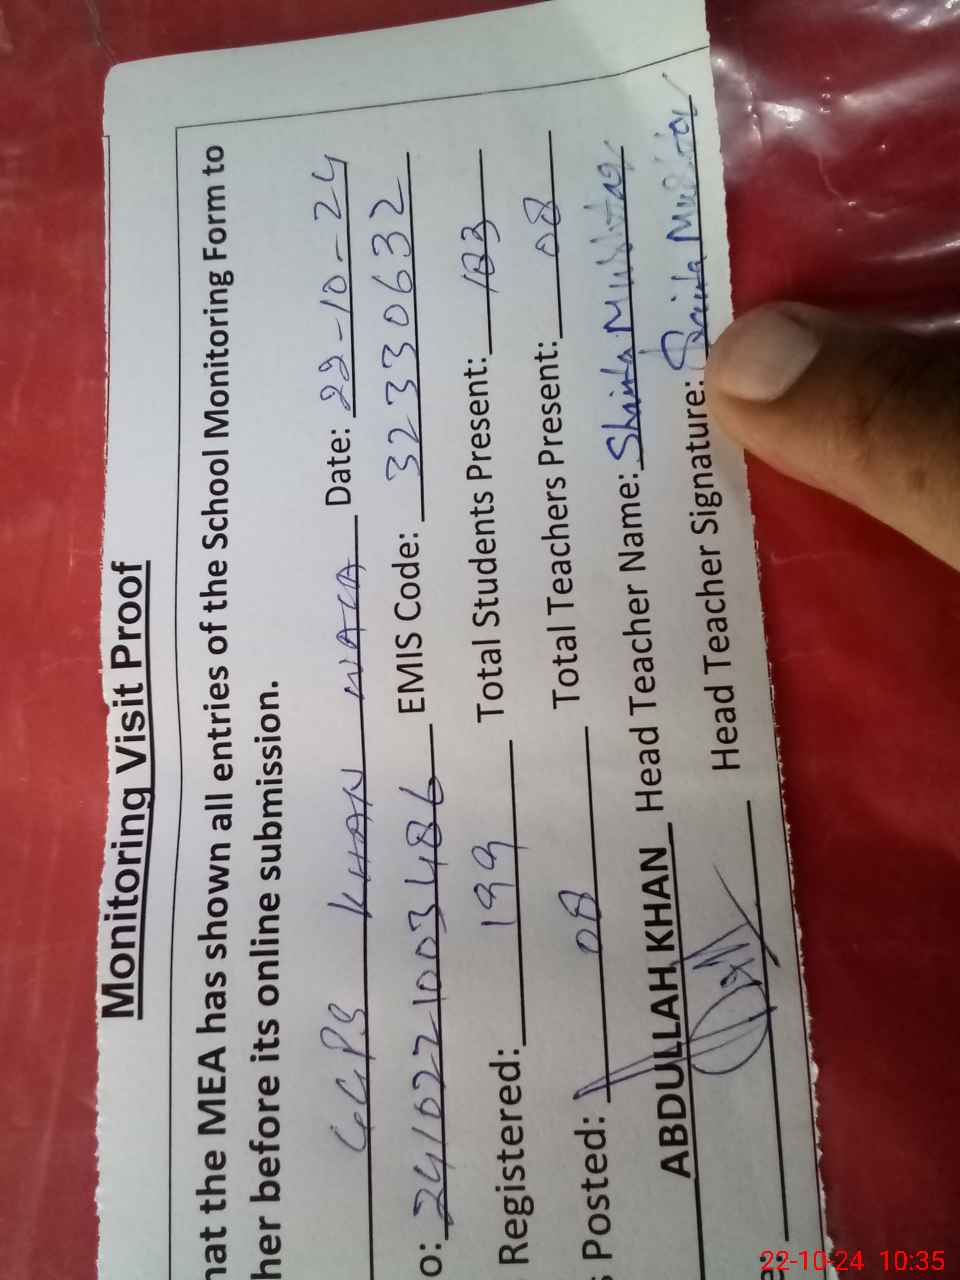 Monitoring Visit Proof
hat the MEA has shown all entries of the School Monitoring Form to
her before its online submission.
GGPS KHAN WALA Date: 22-10-24
o: 2410221003486 EMIS Code: 32330632
Registered: 199 Total Students Present: 183
s Posted: 08 Total Teachers Present: 08
ABDULLAH KHAN Head Teacher Name: Mushtaq
Head Teacher Signature:
22-10-24 10:35